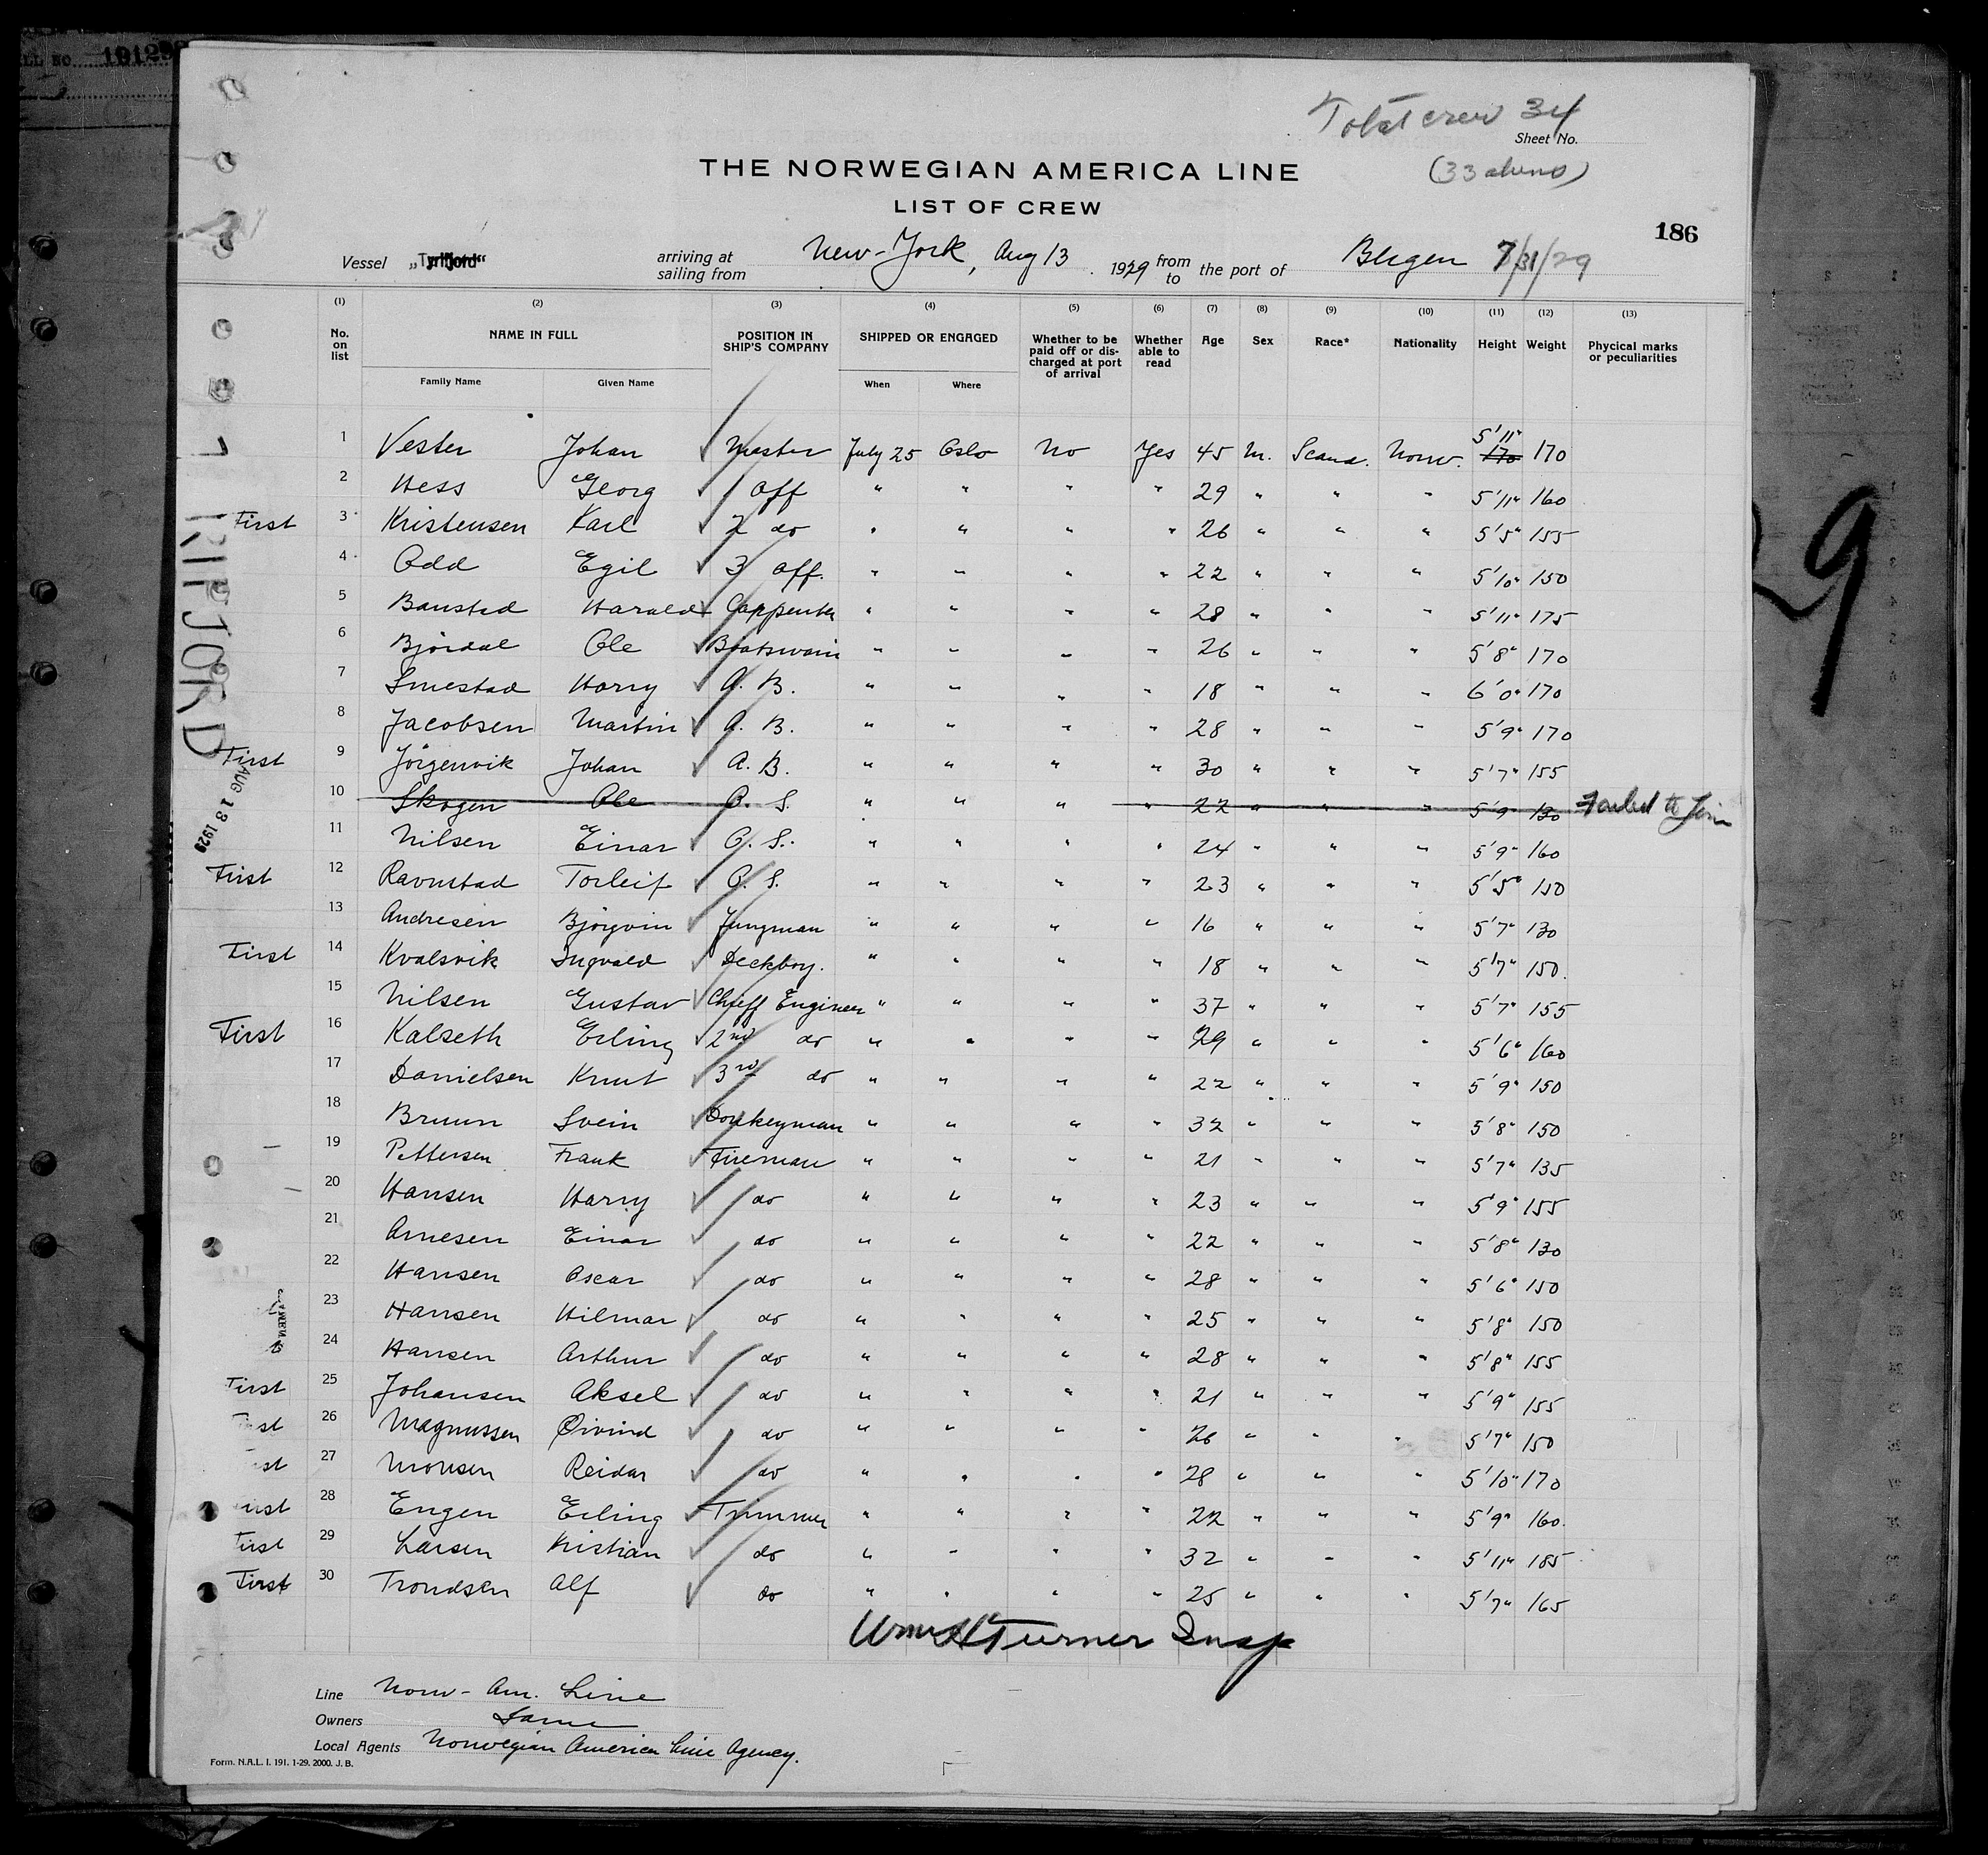 LL NO. 10129
Total crew 34
Sheet No.
(33 aliens)
THE NORWEGIAN AMERICA LINE
LIST OF CREW
186
Vessel „Tyrifjord“ arriving at sailing from New-York, Aug 13. 1929 from to the port of Bergen 7/31/29
(1) (2) (3) (4) (5) (6) (7) (8) (9) (10) (11) (12) (13)
No. on list NAME IN FULL POSITION IN SHIP'S COMPANY SHIPPED OR ENGAGED Whether to be paid off or discharged at port of arrival Whether able to read Age Sex Race* Nationality Height Weight Phycical marks or peculiarities
Family Name Given Name When Where
1 Vester Johan Master July 25 Oslo No Yes 45 M. Scand. Norw. 5'11" 170 170
2 Hess Georg 1 Off " " " " 29 " " " 5'11" 160
First 3 Kristensen Karl 2 do " " " " 26 " " " 5'5" 155
4 Odd Egil 3 Off. " " " " 22 " " " 5'10" 150
5 Banstad Harald Carpenter " " " " 28 " " " 5'11" 175
6 Bjørdal Ole Boatswain " " " " 26 " " " 5'8" 170
7 Smestad Harry A. B. " " " " 18 " " " 6'0" 170
8 Jacobsen Martin A. B. " " " " 28 " " " 5'9" 170
First 9 Jörgenvik Johan A. B. " " " " 30 " " " 5'7" 155
10 Skogen Ole O. S. " " " " 22 " " " 5'9 130 Failed to Join
11 Nilsen Einar O. S. " " " " 24 " " " 5'9" 160
First 12 Ravnstad Torleif O. S. " " " " 23 " " " 5'5" 150
13 Andresen Björgvin Jungman " " " " 16 " " " 5'7" 130
First 14 Kvalsvik Ingvald Deckboy. " " " " 18 " " " 5'7" 150.
15 Nilsen Gustav Chieff Engineer " " " " 37 " " " 5'7" 155
First 16 Kalseth Erling 2nd do " " " " 29 " " " 5'6" 160
17 Danielsen Knut 3rd do " " " " 22 " " " 5'9" 150
18 Bruun Svein Donkeyman " " " " 32 " " " 5'8" 150
19 Pettersen Frank Fireman " " " " 21 " " " 5'7" 135
20 Hansen Harry do " " " " 23 " " " 5'9" 155
21 Arnesen Einar do " " " " 22 " " " 5'8" 130
22 Hansen Oscar do " " " " 28 " " " 5'6" 150
23 Hansen Hilmar do " " " " 25 " " " 5'8" 150
24 Hansen Arthur do " " " " 28 " " " 5'8" 155
First 25 Johansen Aksel do " " " " 21 " " " 5'9" 155
First 26 Magnussen Øivind do " " " " 26 " " " 5'7" 150
st 27 Monsen Reidar do " " " " 28 " " " 5'10" 170
irst 28 Engen Erling Trimmer " " " " 22 " " " 5'9" 160.
First 29 Larsen Kristian do " " " " 32 " " " 5'11" 185
First 30 Trondsen Alf do " " " " 25 " " " 5'7" 165
Wm H Turner Insp
Line Norw-Am. Line
Owners Same
Local Agents Norwegian America Line Agency.
Form. N.A.L. I. 191. 1-29. 2000. J. B.
AUG 13 1929
9